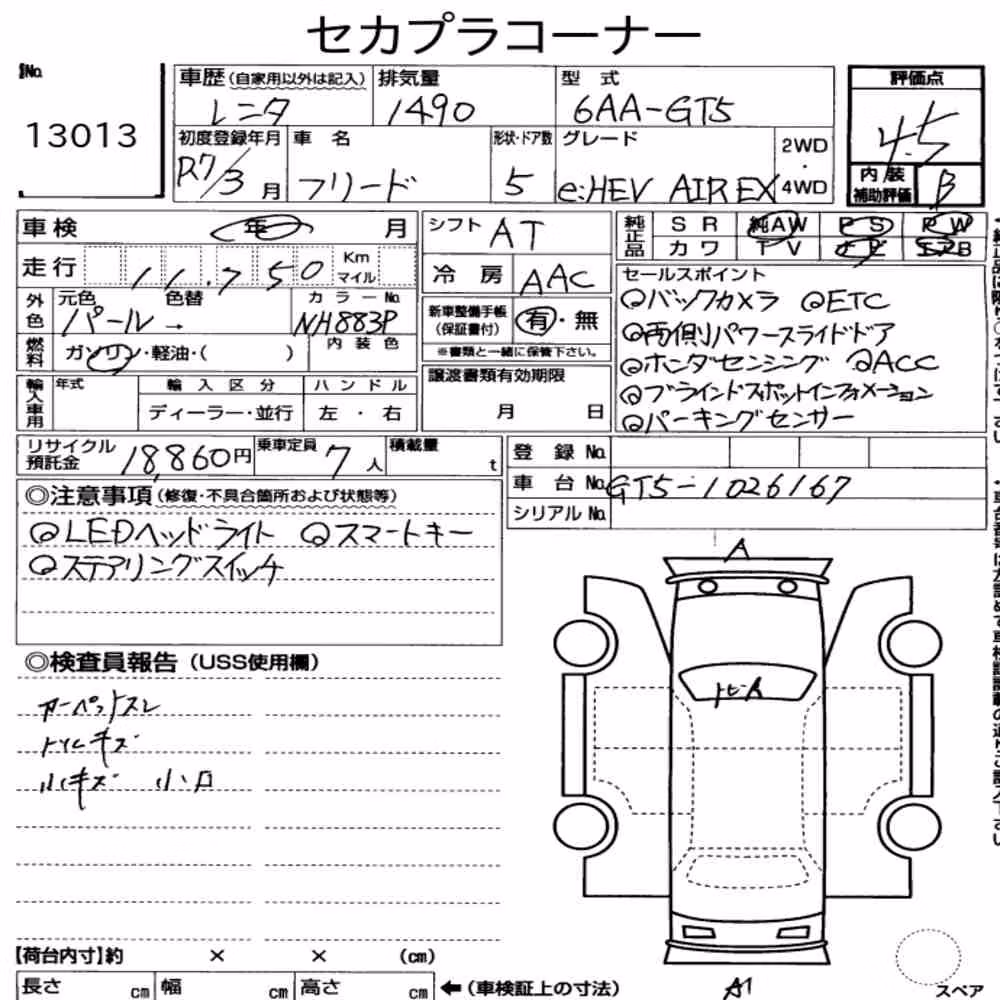 セカプラコーナー
No.
13013
車歴 (自家用以外は記入)
レンタ
排気量
1490
型 式
6AA-GT5
評価点
4.5
内装補助評価
B
初度登録年月
R7/3月
車 名
フリード
形状・ドア数
5
グレード
e:HEV AIR EX
2WD
・
4WD
車検 年 月
走行 11,750 Km マイル
外色
元色 色替
パール→
カラーNo.
NH883P
燃料
ガソリン・軽油・( )
内装色
輸入車用
年式
輸入区分
ディーラー・並行
ハンドル
左 ・ 右
シフト AT
冷房 AAC
新車整備手帳
(保証書付)
有・無
※書類と一緒に保管下さい。
譲渡書類有効期限
月 日
純正品
SR 純AW PS PW
カワ TV ナビ エアB
セールスポイント
◎バックカメラ ◎ETC
◎両側パワースライドドア
◎ホンダセンシング ◎ACC
◎ブラインドスポットインフォメーション
◎パーキングセンサー
リサイクル預託金 18,860円
乗車定員 7人
積載量 t
登録No.
車台No. GT5-1026167
シリアルNo.
◎注意事項 (修復・不具合箇所および状態等)
◎LEDヘッドライト ◎スマートキー
◎ステアリングスイッチ
◎検査員報告 (USS使用欄)
カーペットスレ
トリムキズ
小キズ 小凹
A
A1
【荷台内寸】約 × × (cm)
長さ cm 幅 cm 高さ cm
←(車検証上の寸法)
スペア